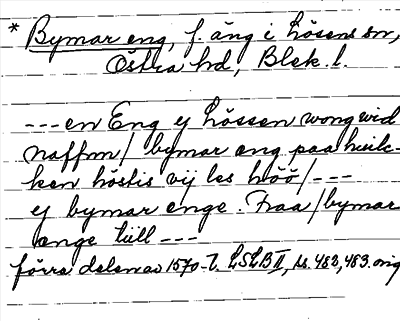 * Bymar eng, f. äng i Lösens sn,
Östra hd, Blek. l.
---en Eng ej Lössen wong wid
naffnn/ bymar eng paa huilc-
ken höstis vij les höö/---
ej bymar enge. Fraa/bymar
enge till ---
förra delen av 1570-t. LSLB II, ss. 482, 483. orig